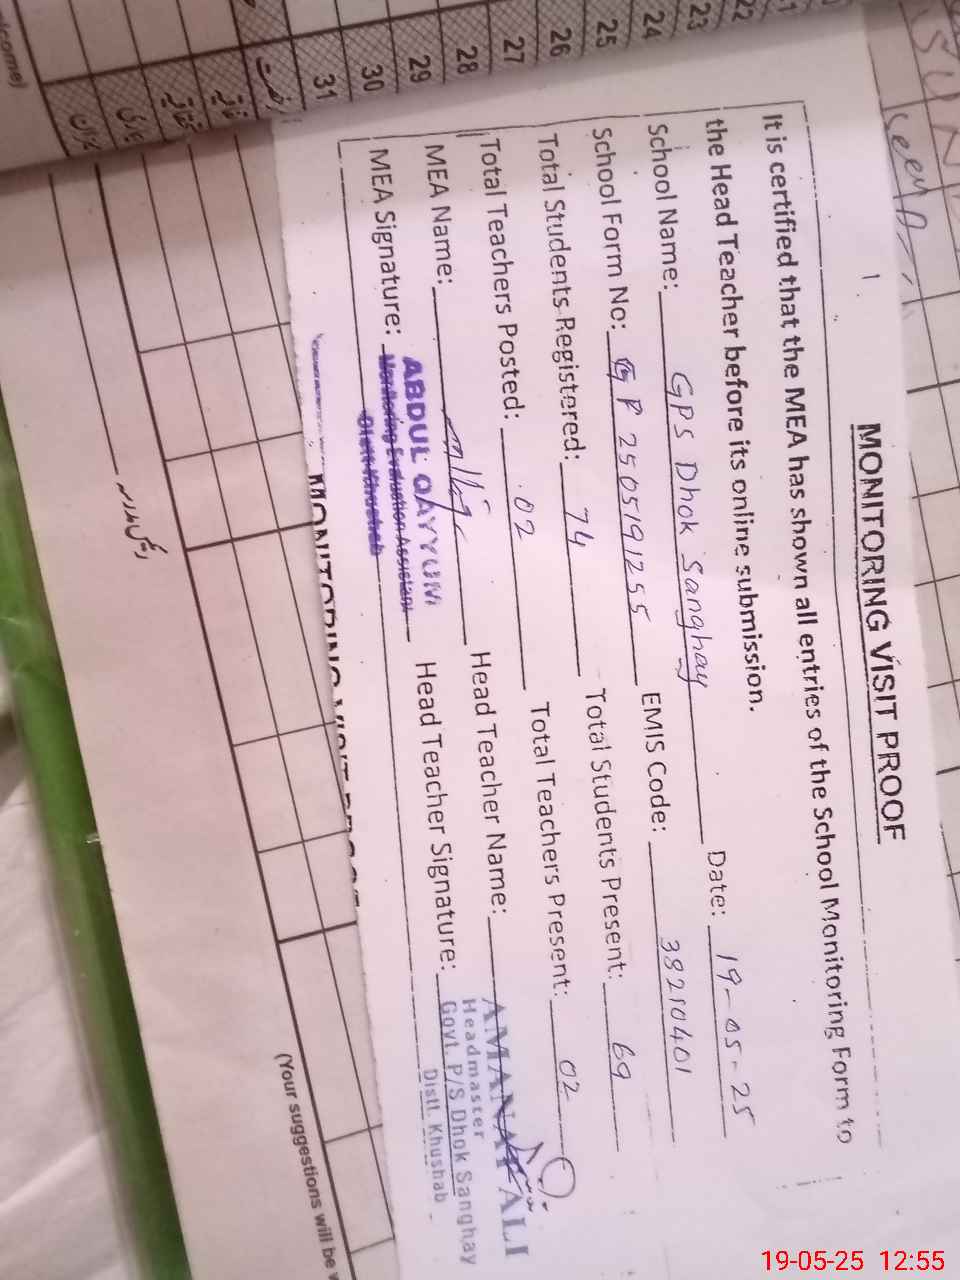 MONITORING VISIT PROOF
It is certified that the MEA has shown all entries of the School Monitoring Form to
the Head Teacher before its online submission.
School Name: GPS Dhok Sanghay Date: 19-05-25
School Form No: GP 2505191255 EMIS Code: 38210401
Total Students Registered: 74 Total Students Present: 69
Total Teachers Posted: 02 Total Teachers Present: 02
MEA Name: Head Teacher Name: AMANAT ALI
MEA Signature: ABDUL QAYYUM Head Teacher Signature: Headmaster
Monitoring Evaluation Assistant Govt. P/S Dhok Sanghay
Distt. Khushab Distt. Khushab
MONITORING VISIT PROOF
22
23
24
25
26
27
28
29
30
31
(Your suggestions will be
19-05-25 12:55